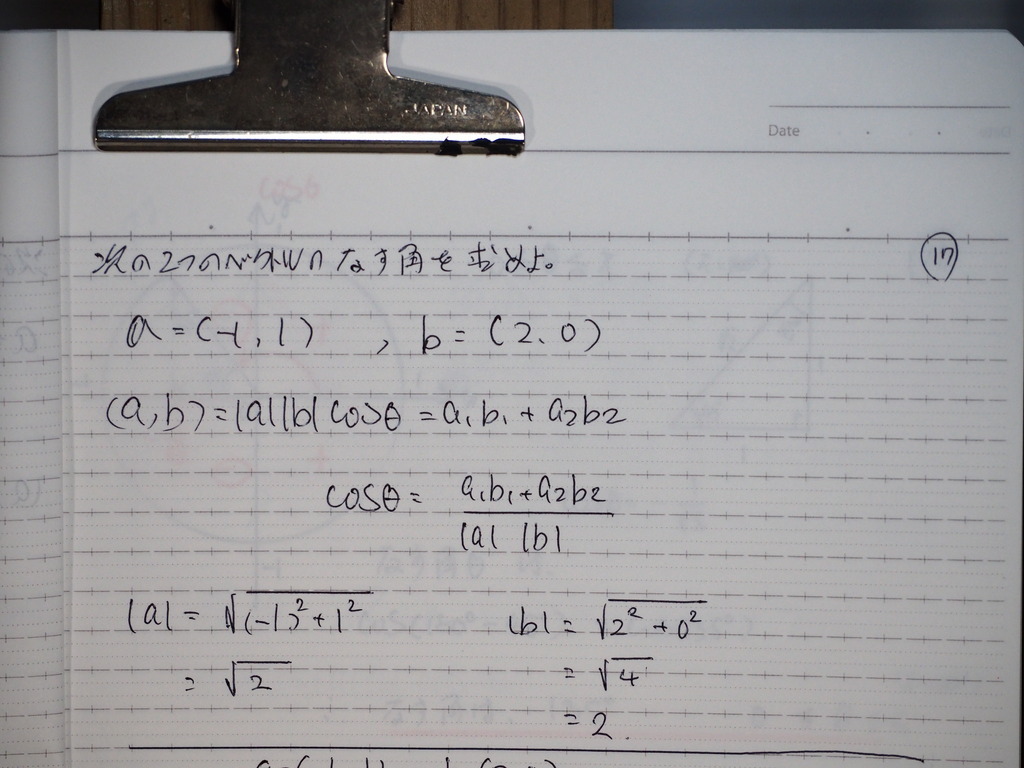 JAPAN
Date
次の2つのベクトルのなす角を求めよ。 ⑰
a = (-1, 1) , b = (2, 0)
(a, b) = |a||b| cosθ = a₁b₁ + a₂b₂
cosθ = a₁b₁ + a₂b₂
|a| |b|
|a| = √(-1)² + 1² |b| = √2² + 0²
= √2 = √4
= 2.